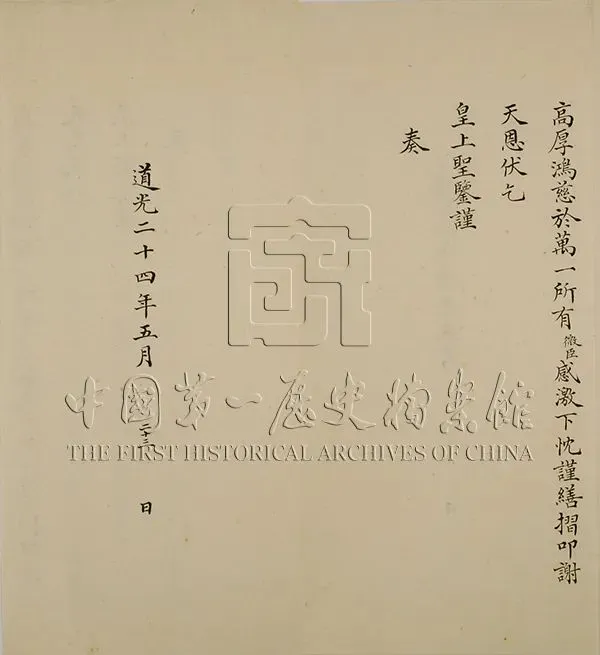 高厚鴻慈於萬一所有微臣感激下忱謹繕摺叩謝
天恩伏乞
皇上聖鑒謹
奏
道光二十四年五月二十三日
中國第一歷史檔案館
THE FIRST HISTORICAL ARCHIVES OF CHINA